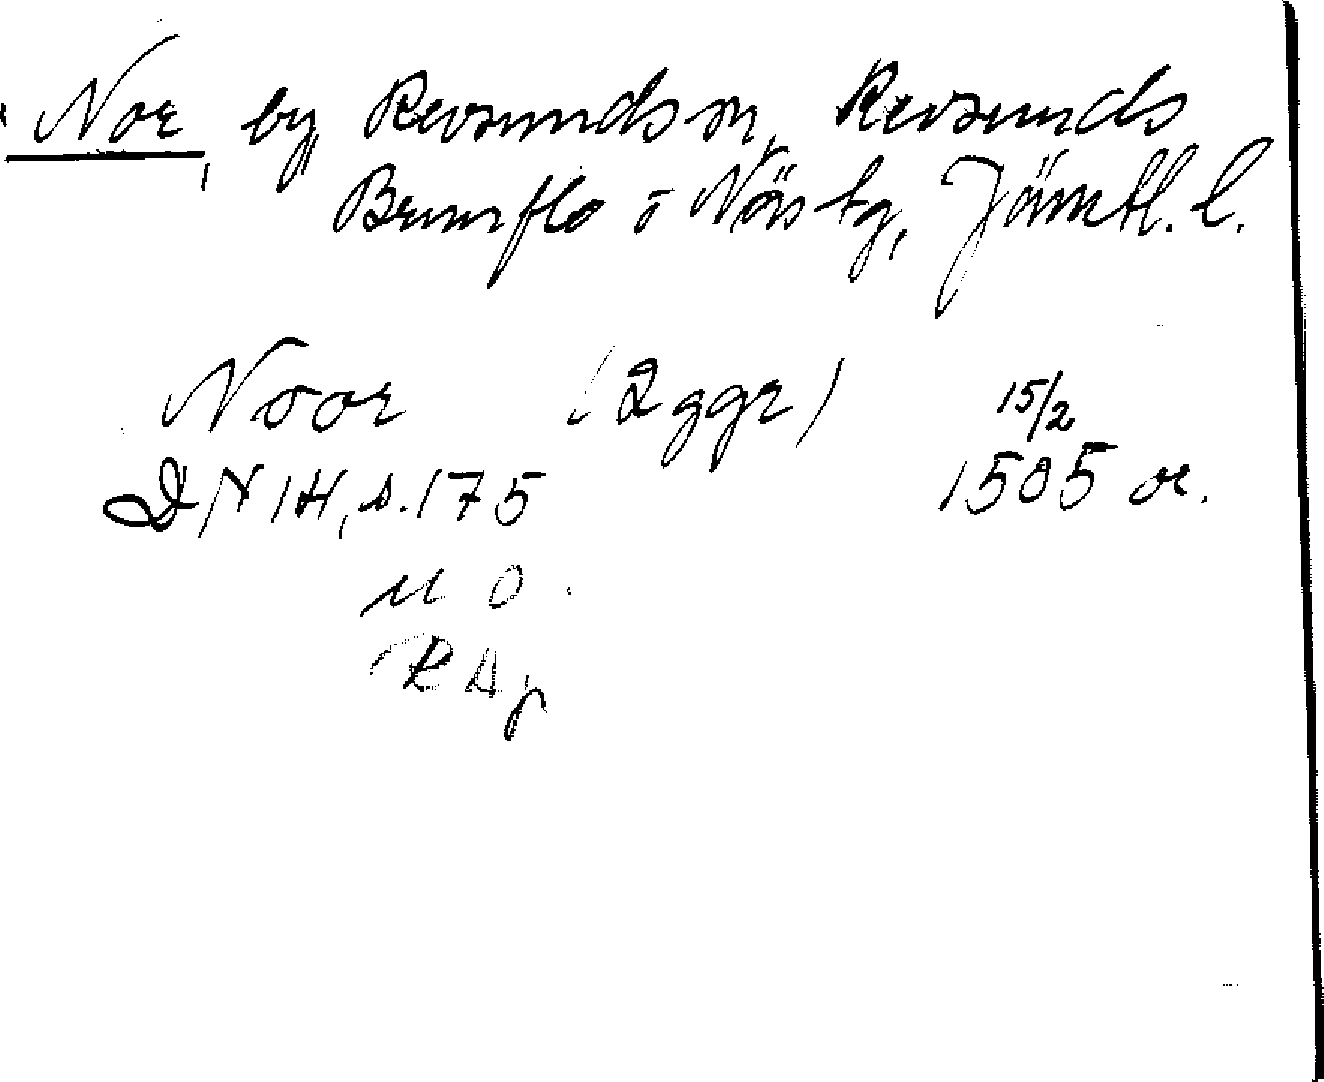 Nor, by Revsunds sn, Revsunds
Brunflo o Näs tg, Jämtl. l.
Noor (2 ggr) 15/2
DN 14, s. 175 1505 or.
U O.
RAp